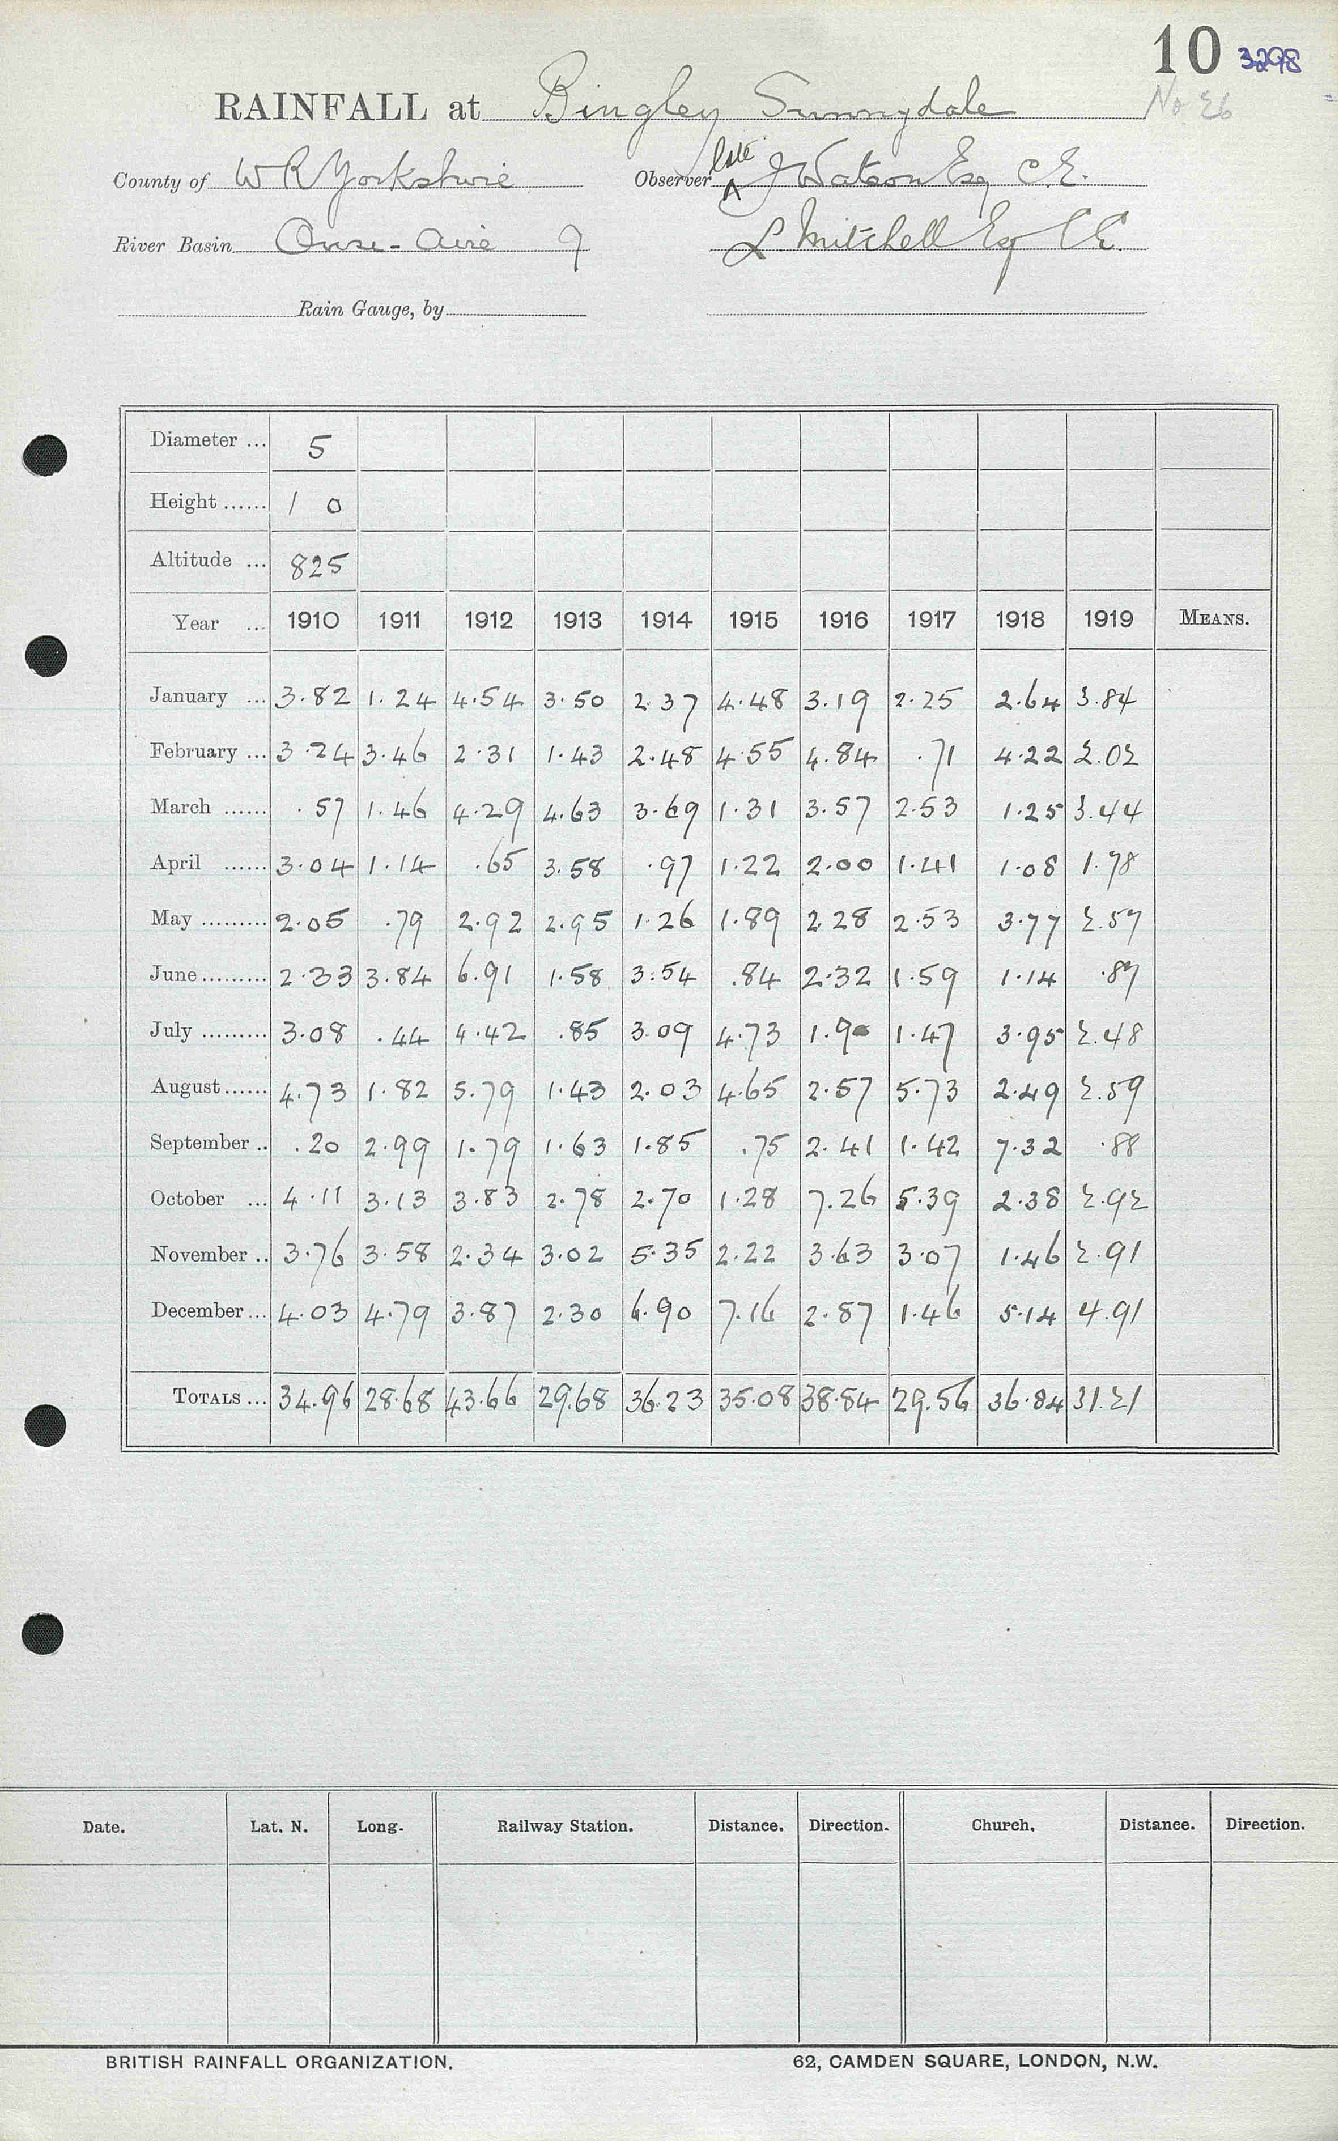 10 3298
RAINFALL at Bingley Sunnydale No E6
County of W R Yorkshire Observer late J Watson Esq C.E.
River Basin Ouse - Aire 9 L Mitchell Esq C E.
Rain Gauge, by
Diameter ... 5
Height ...... 1 0
Altitude ... 825
Year ... 1910 1911 1912 1913 1914 1915 1916 1917 1918 1919 MEANS.
January ... 3.82 1.24 4.54 3.50 2.37 4.48 3.19 2.25 2.64 3.84
February ... 3.24 3.46 2.31 1.43 2.48 4.55 4.84 .71 4.22 2.02
March ...... .57 1.46 4.29 4.63 3.69 1.31 3.57 2.53 1.25 3.44
April ...... 3.04 1.14 .65 3.58 .97 1.22 2.00 1.41 1.08 1.78
May ......... 2.05 .79 2.92 2.95 1.26 1.89 2.28 2.53 3.77 2.57
June ......... 2.33 3.84 6.91 1.58 3.54 .84 2.32 1.59 1.14 .87
July ......... 3.08 .44 4.42 .85 3.09 4.73 1.90 1.47 3.95 2.48
August ...... 4.73 1.82 5.79 1.43 2.03 4.65 2.57 5.73 2.49 2.59
September .. .20 2.99 1.79 1.63 1.85 .75 2.41 1.42 7.32 .88
October ... 4.11 3.13 3.83 2.78 2.70 1.28 7.26 5.39 2.38 2.92
November .. 3.76 3.58 2.34 3.02 5.35 2.22 3.63 3.07 1.46 2.91
December ... 4.03 4.79 3.87 2.30 6.90 7.16 2.87 1.46 5.14 4.91
TOTALS ... 34.96 28.68 43.66 29.68 36.23 35.08 38.84 29.56 36.84 31.21
Date. Lat. N. Long. Railway Station. Distance. Direction. Church. Distance. Direction.
BRITISH RAINFALL ORGANIZATION. 62, CAMDEN SQUARE, LONDON, N.W.